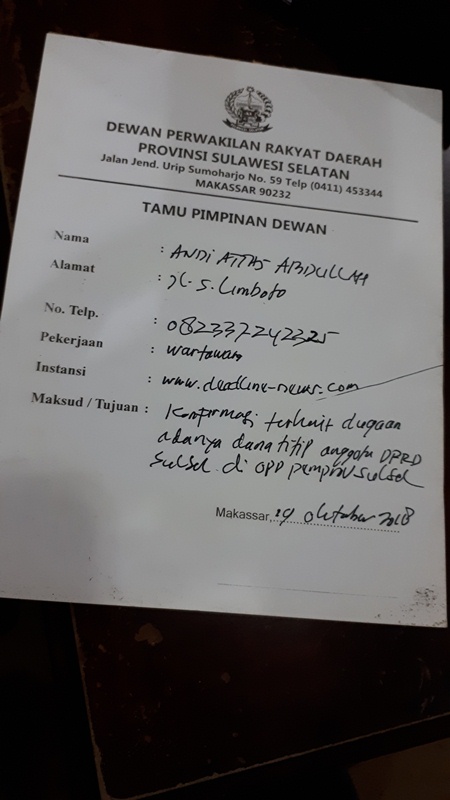 DEWAN PERWAKILAN RAKYAT DAERAH
PROVINSI SULAWESI SELATAN
Jalan Jend. Urip Sumoharjo No. 59 Telp (0411) 453344
MAKASSAR 90232
TAMU PIMPINAN DEWAN
Nama : ANDI ATTAS ABDULLAH
Alamat : Jl. S. Limboto
No. Telp. : 082337242325
Pekerjaan : wartawan
Instansi : www.deadline-news.com
Maksud / Tujuan : Konfirmasi terkait dugaan
adanya dana titip anggota DPRD
Sulsel di OPD pemprov sulsel
Makassar, 19 oktober 2018